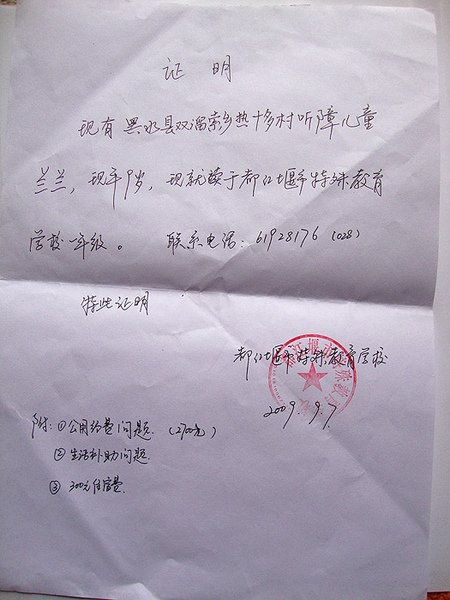 证 明
现有黑水县双溜索乡热十多村听障儿童
兰兰，现年9岁，现就读于都江堰市特殊教育
学校一年级。 联系电话：61928176 (028)
特此证明
都江堰市特殊教育学校
2009.9.7
附：①公用经费问题．(2700元)
②生活补助问题
③ 300元住宿费．